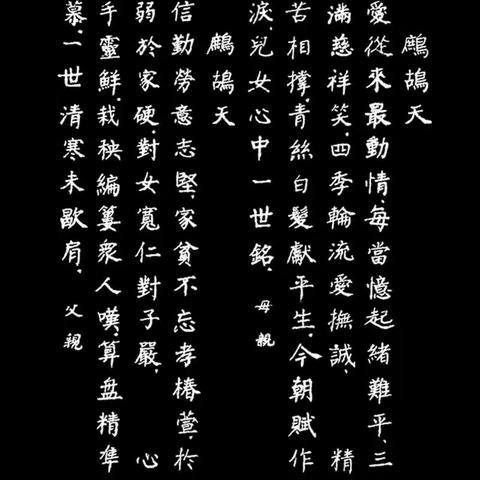 鷓鴣天
愛從來最動情,每當憶起緒難平、三
滿慈祥笑,四季輪流愛撫誠, 精
苦相撐,青絲白髮獻平生,今朝賦作
淚,兒女心中一世銘, 母親
鷓鴣天
信勤勞意志堅,家貧不忘孝椿萱,於
弱於家硬,對女寬仁對子嚴, 心
手靈鮮,栽秧編簍眾人嘆,算盘精隼
慕,一世清寒未歇肩, 父親